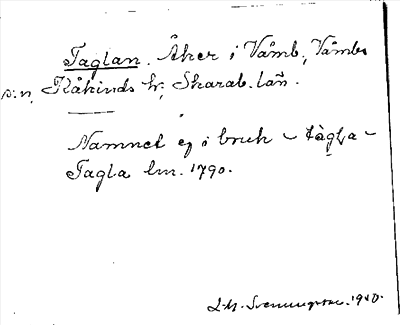 Taglan. Åker i Våmb, Våmbs
s:n, Kåkinds hr; Skarab. län.
Namnet ej i bruk – tàgɭa –
Tagla lm. 1790.
1910.